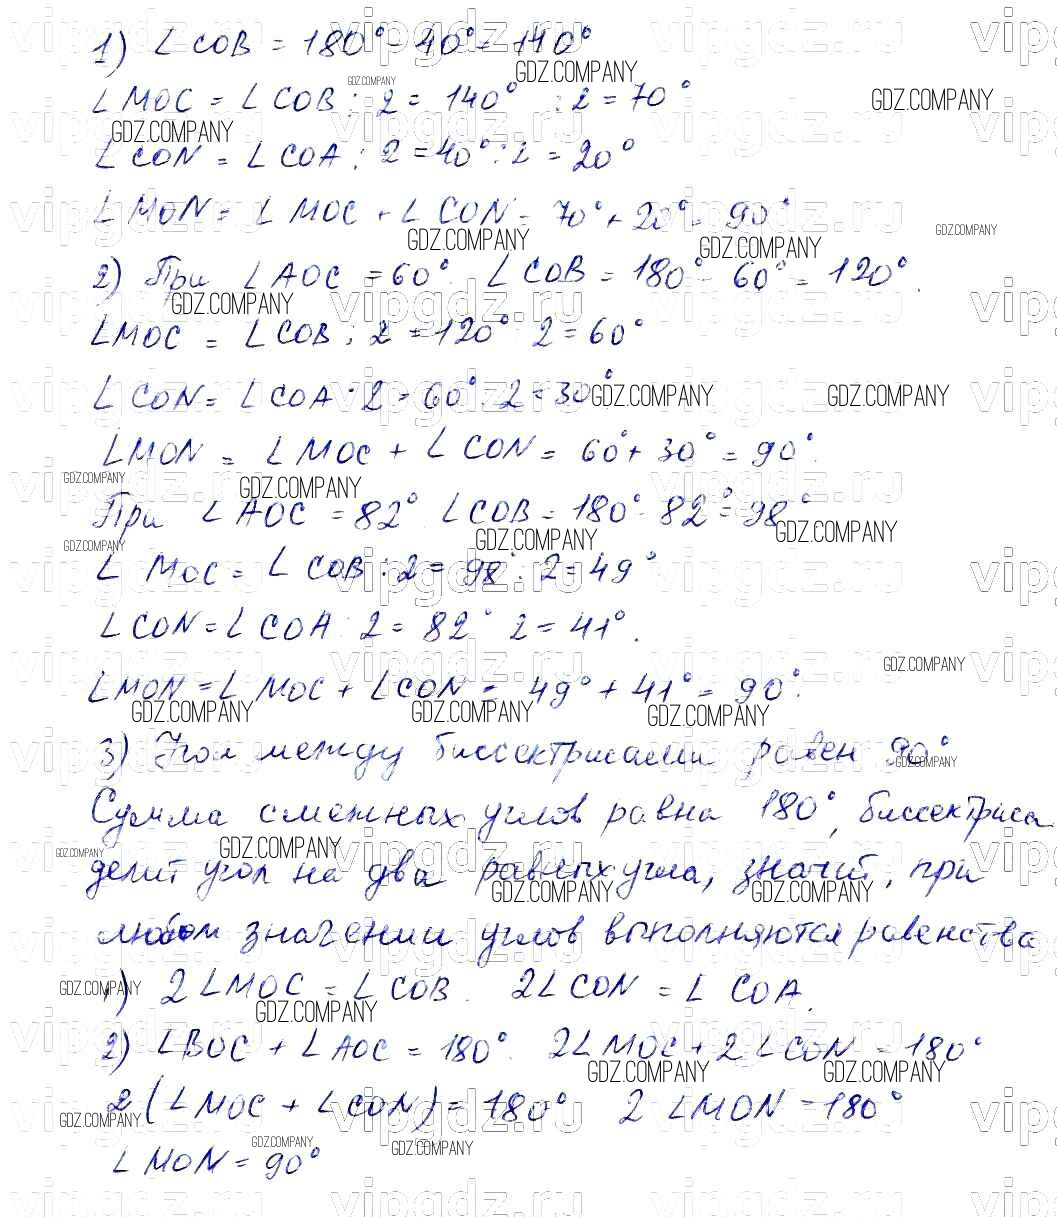 1) ∠COB = 180° - 40° = 140°
∠MOC = ∠COB : 2 = 140° : 2 = 70°
∠CON = ∠COA : 2 = 40° : 2 = 20°
∠MON = ∠MOC + ∠CON = 70° + 20° = 90°
2) При ∠AOC = 60° ∠COB = 180° - 60° = 120°.
∠MOC = ∠COB : 2 = 120° 2 = 60°
∠CON = ∠COA : 2 = 60° : 2 = 30°
∠MON = ∠MOC + ∠CON = 60° + 30° = 90°.
При ∠AOC = 82° ∠COB = 180° - 82° = 98°
∠MOC = ∠COB : 2 = 98° : 2 = 49°
∠CON = ∠COA : 2 = 82° 2 = 41°.
∠MON = ∠MOC + ∠CON = 49° + 41° = 90°.
3) Угол между биссектрисами равен 90°
Сумма смежных углов равна 180°, биссектриса
делит угол на два равных угла, значит, при
любом значении углов выполняются равенства
1) 2∠MOC = ∠COB. 2∠CON = ∠COA.
2) ∠BOC + ∠AOC = 180°. 2∠MOC + 2∠CON = 180°
2(∠MOC + ∠CON) = 180° 2∠MON = 180°
∠MON = 90°
vipgdz.ru
GDZ.COMPANY